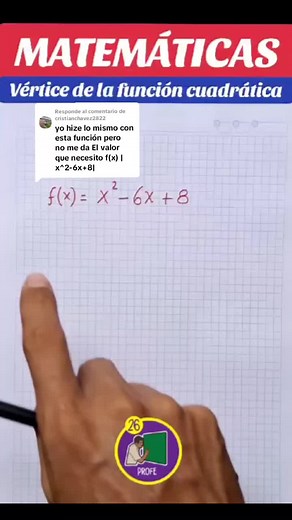 MATEMÁTICAS
Vértice de la función cuadrática
Responde al comentario de
cristianchavez2822
yo hize lo mismo con
esta función pero
no me da El valor
que necesito f(x) |
x^2-6x+8|
f(x) = x² - 6x + 8
26
PROFE